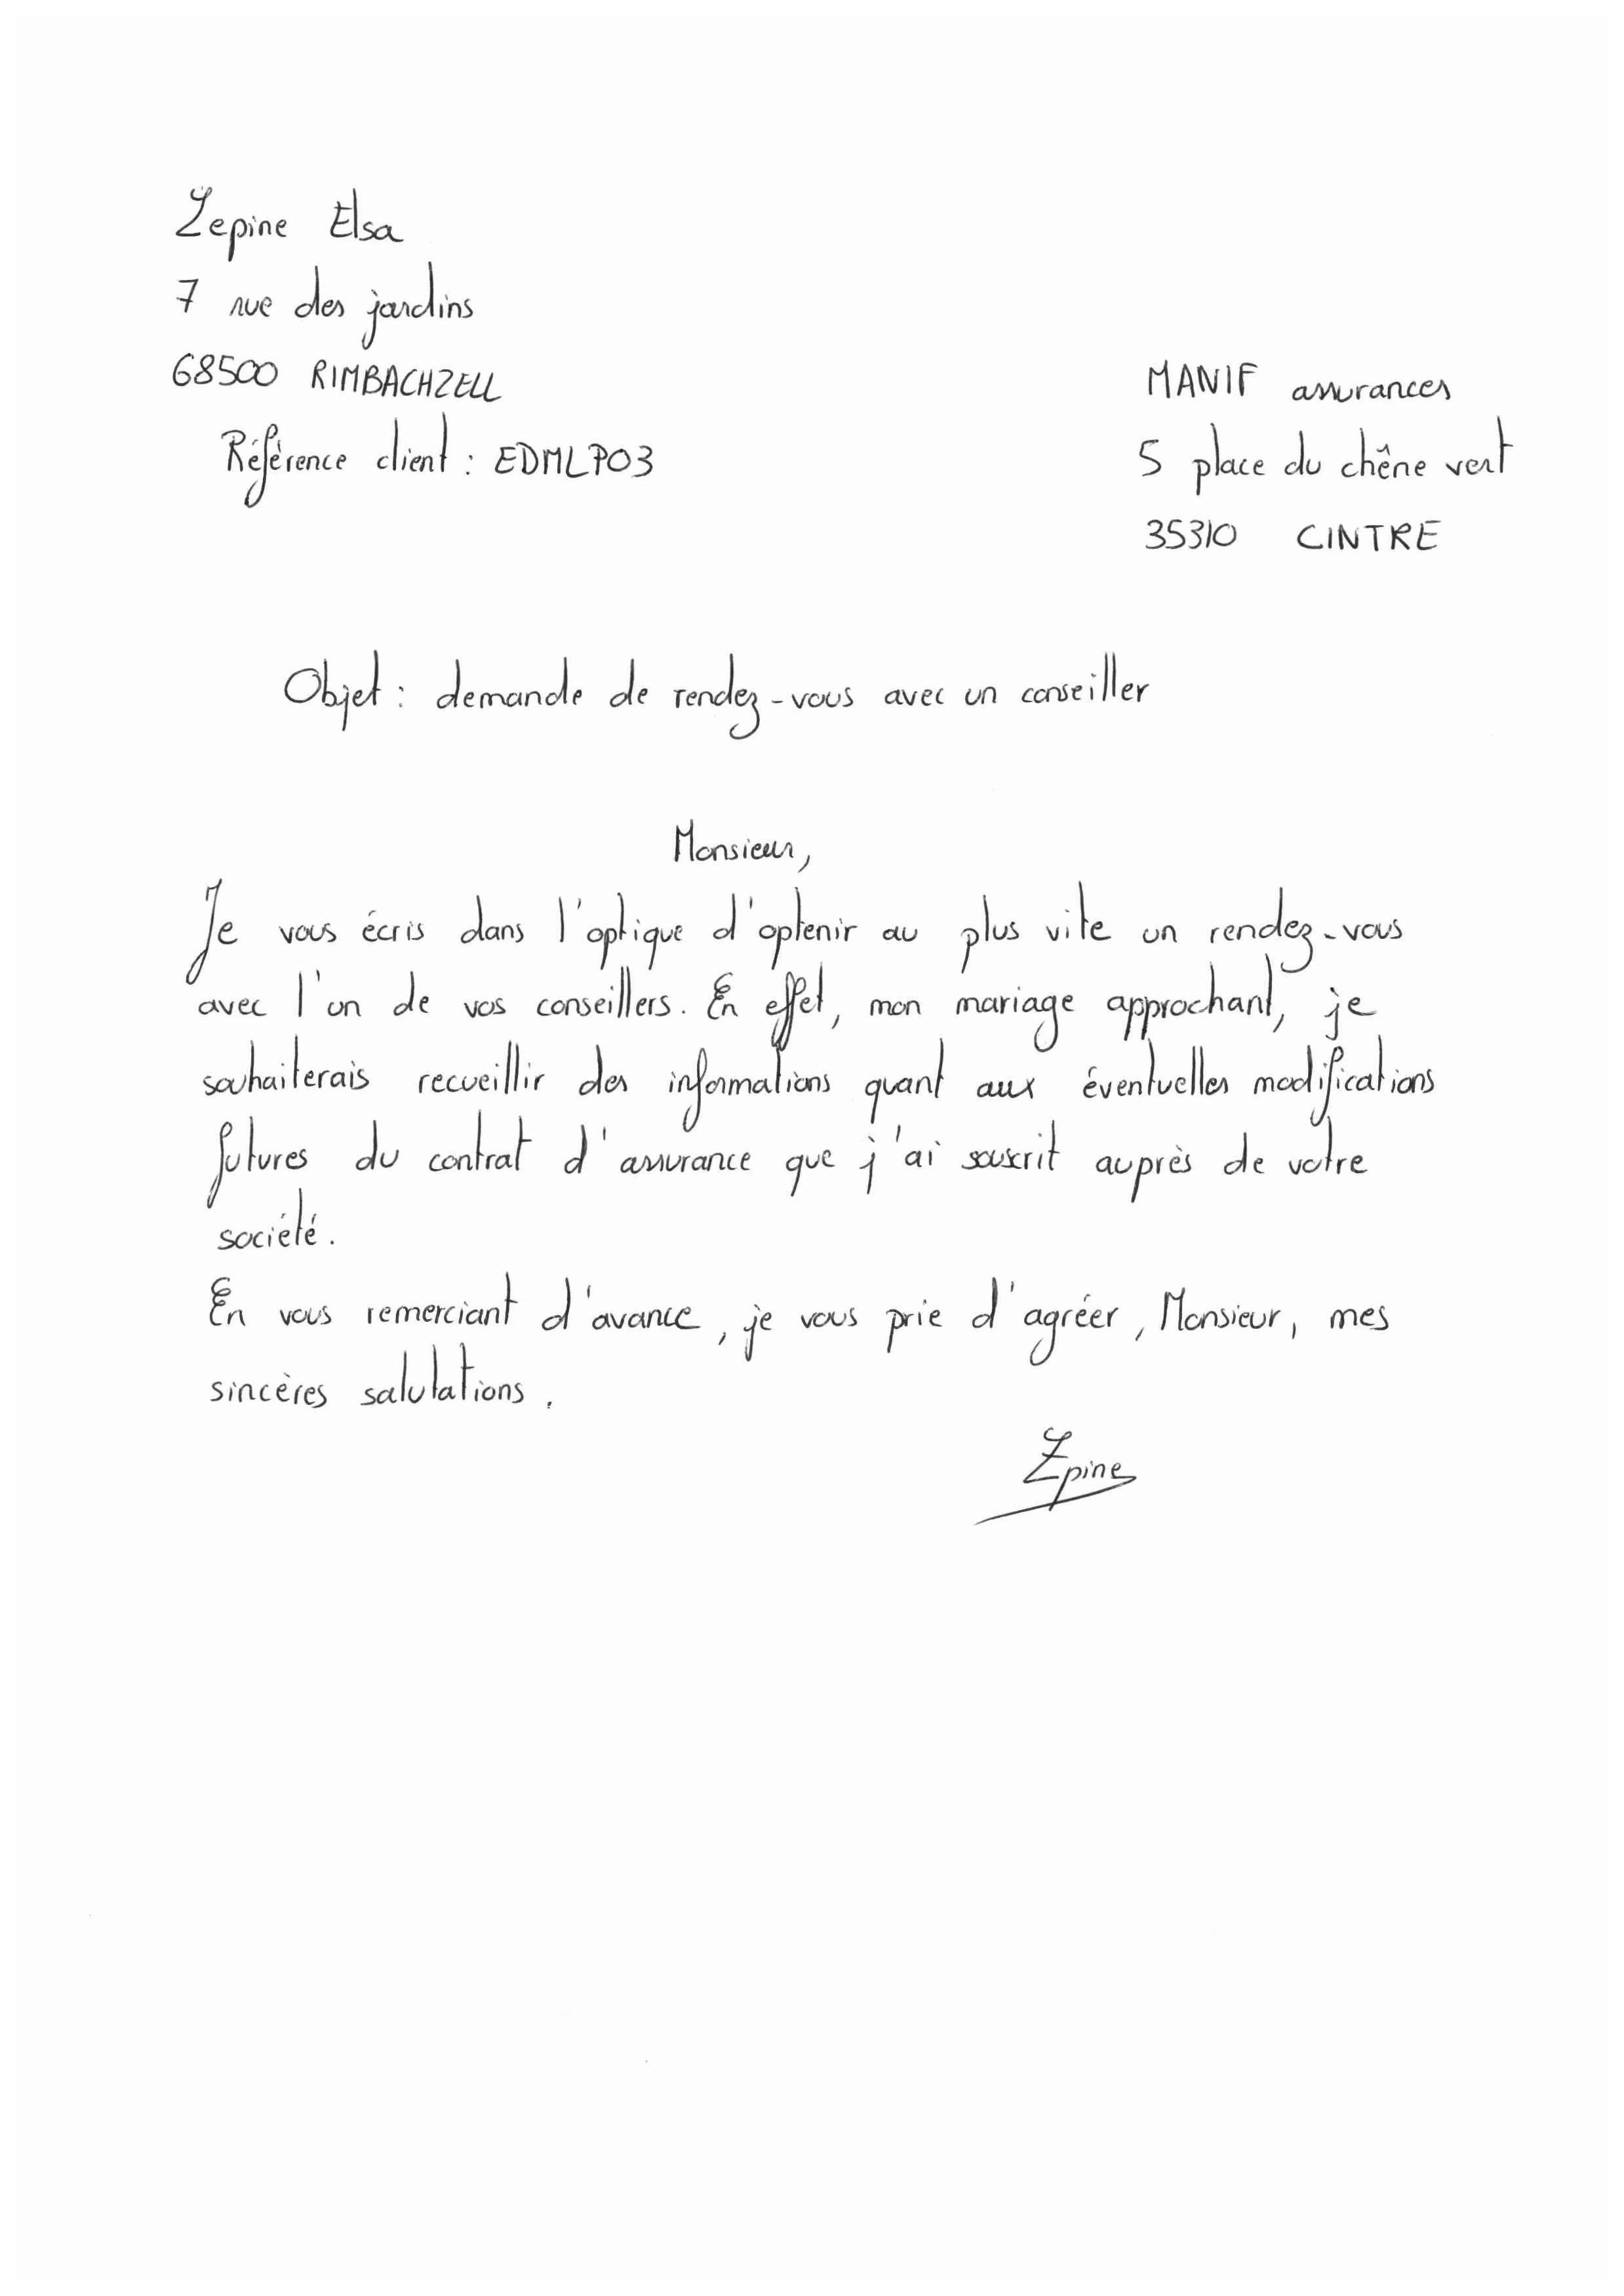 Lepine Elsa
7 rue des jardins
68500 RIMBACHZELL
Référence client : EDMLP03
MANIF assurances
5 place du chêne vert
35310 CINTRE
Objet : demande de rendez-vous avec un conseiller
Monsieur,
Je vous écris dans l'optique d'optenir au plus vite un rendez-vous
avec l'un de vos conseillers. En effet, mon mariage approchant, je
souhaiterais recueillir des informations quant aux éventuelles modifications
futures du contrat d'assurance que j'ai souscrit auprès de votre
société.
En vous remerciant d'avance, je vous prie d'agréer, Monsieur, mes
sincères salutations.
Lpine